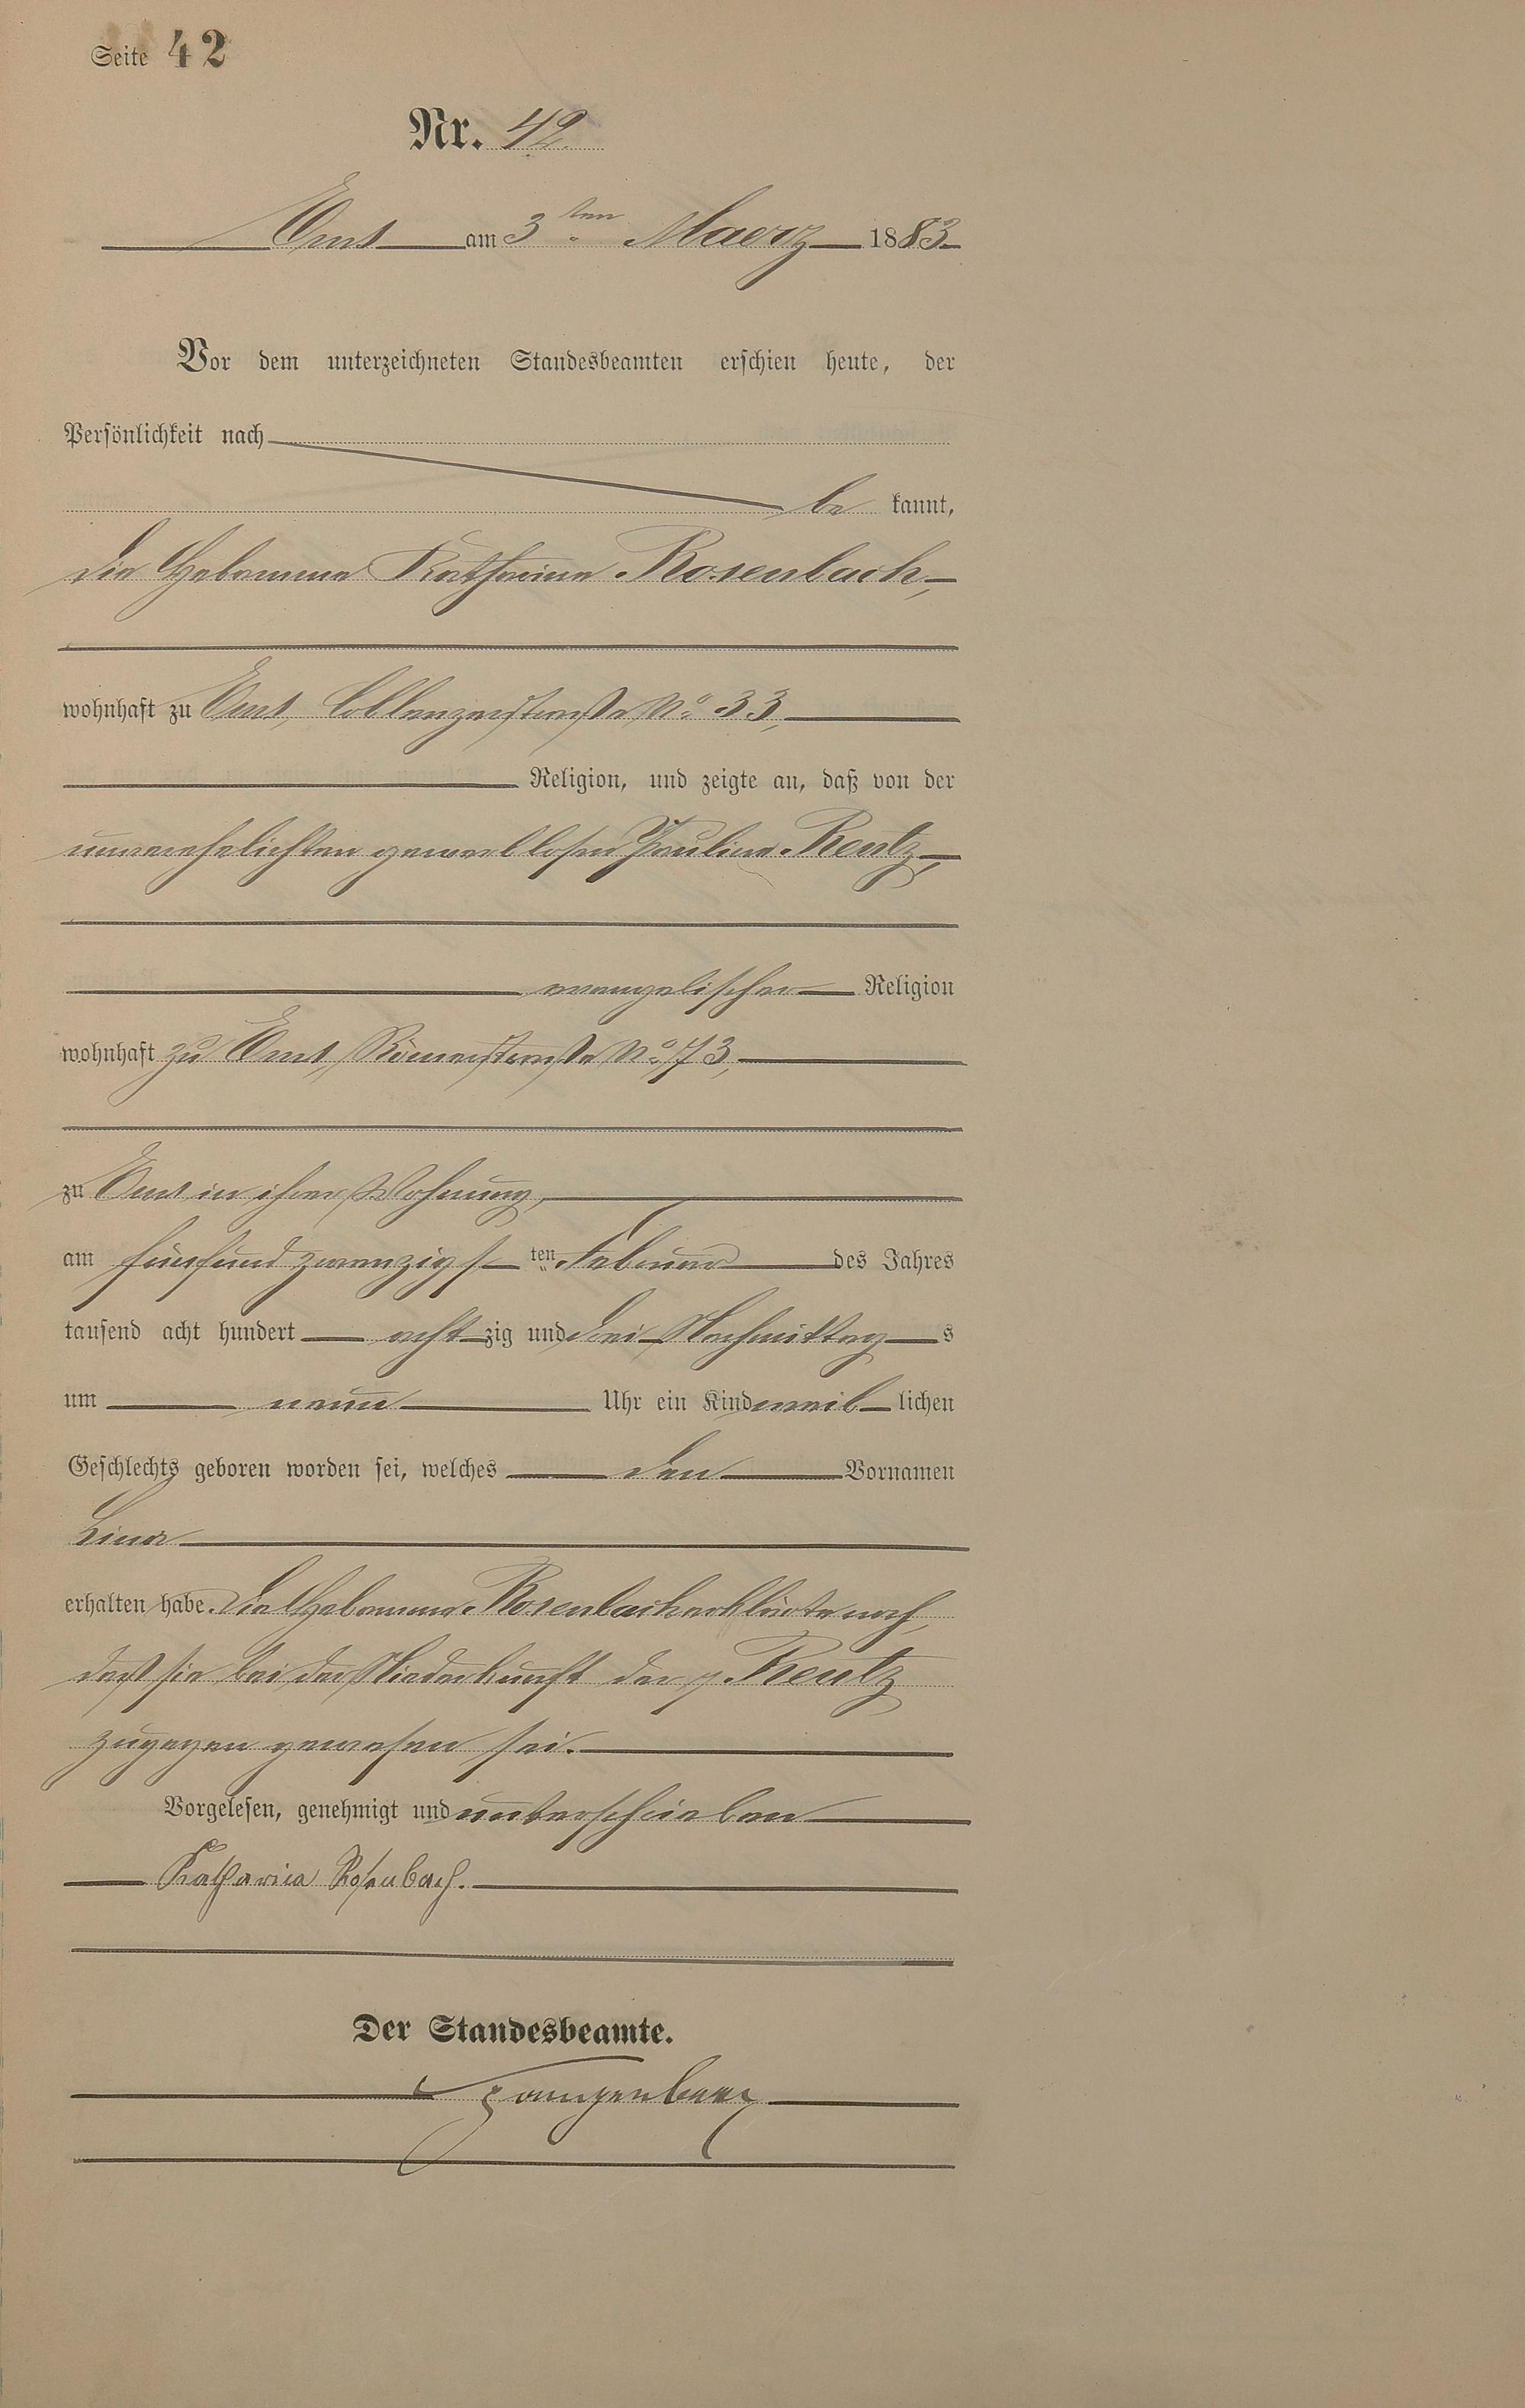 Seite 42
Nr. 42.
Ems am 3ten Maerz 1883
Vor dem unterzeichneten Standesbeamten erschien heute, der
Persönlichkeit nach
be kannt,
die Hebamme Katharina Rosenbach,
wohnhaft zu Ems, Coblenzerstraße No. 33,
Religion, und zeigte an, daß von der
unverehelichten gewerblosen Pauline Rentz,
evangelischer Religion
wohnhaft zu Ems, Römerstraße No. 73,
zu Ems in ihrer Wohnung,
am fünfundzwanzigs ten Februar des Jahres
tausend acht hundert acht zig und drei Nachmittag s
um neun Uhr ein Kind weib lichen
Geschlechts geboren worden sei, welches den Vornamen
Lina
erhalten habe. Die Hebamme Rosenbach erklärte noch,
daß sie bei der Niederkunft der p. Rentz
zugegen gewesen sei.
Vorgelesen, genehmigt und unterschrieben
Katharina Rosenbach.
Der Standesbeamte.